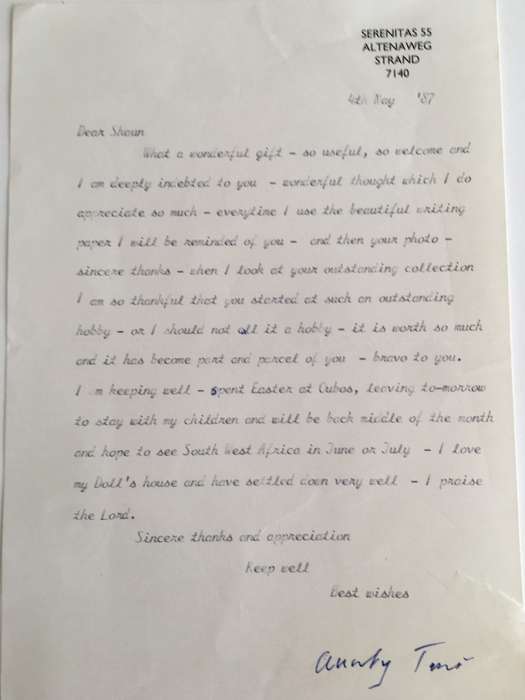 SERENITAS 55
ALTENAWEG
STRAND
7140
4th May '87
Dear Shaun
What a wonderful gift - so useful, so welcome and
I am deeply indebted to you - wonderful thought which I do
appreciate so much - everytime I use the beautiful writing
paper I will be reminded of you - and then your photo -
sincere thanks - when I look at your outstanding collection
I am so thankful that you started at such an outstanding
hobby - or I should not all it a hobby - it is worth so much
and it has become part and parcel of you - bravo to you.
I am keeping well - spent Easter at Cubos, leaving to-morrow
to stay with my children and will be back middle of the month
and hope to see South West Africa in June or July - I love
my Doll's house and have settled down very well - I praise
the Lord.
Sincere thanks and appreciation
Keep well
Best wishes
Aunty